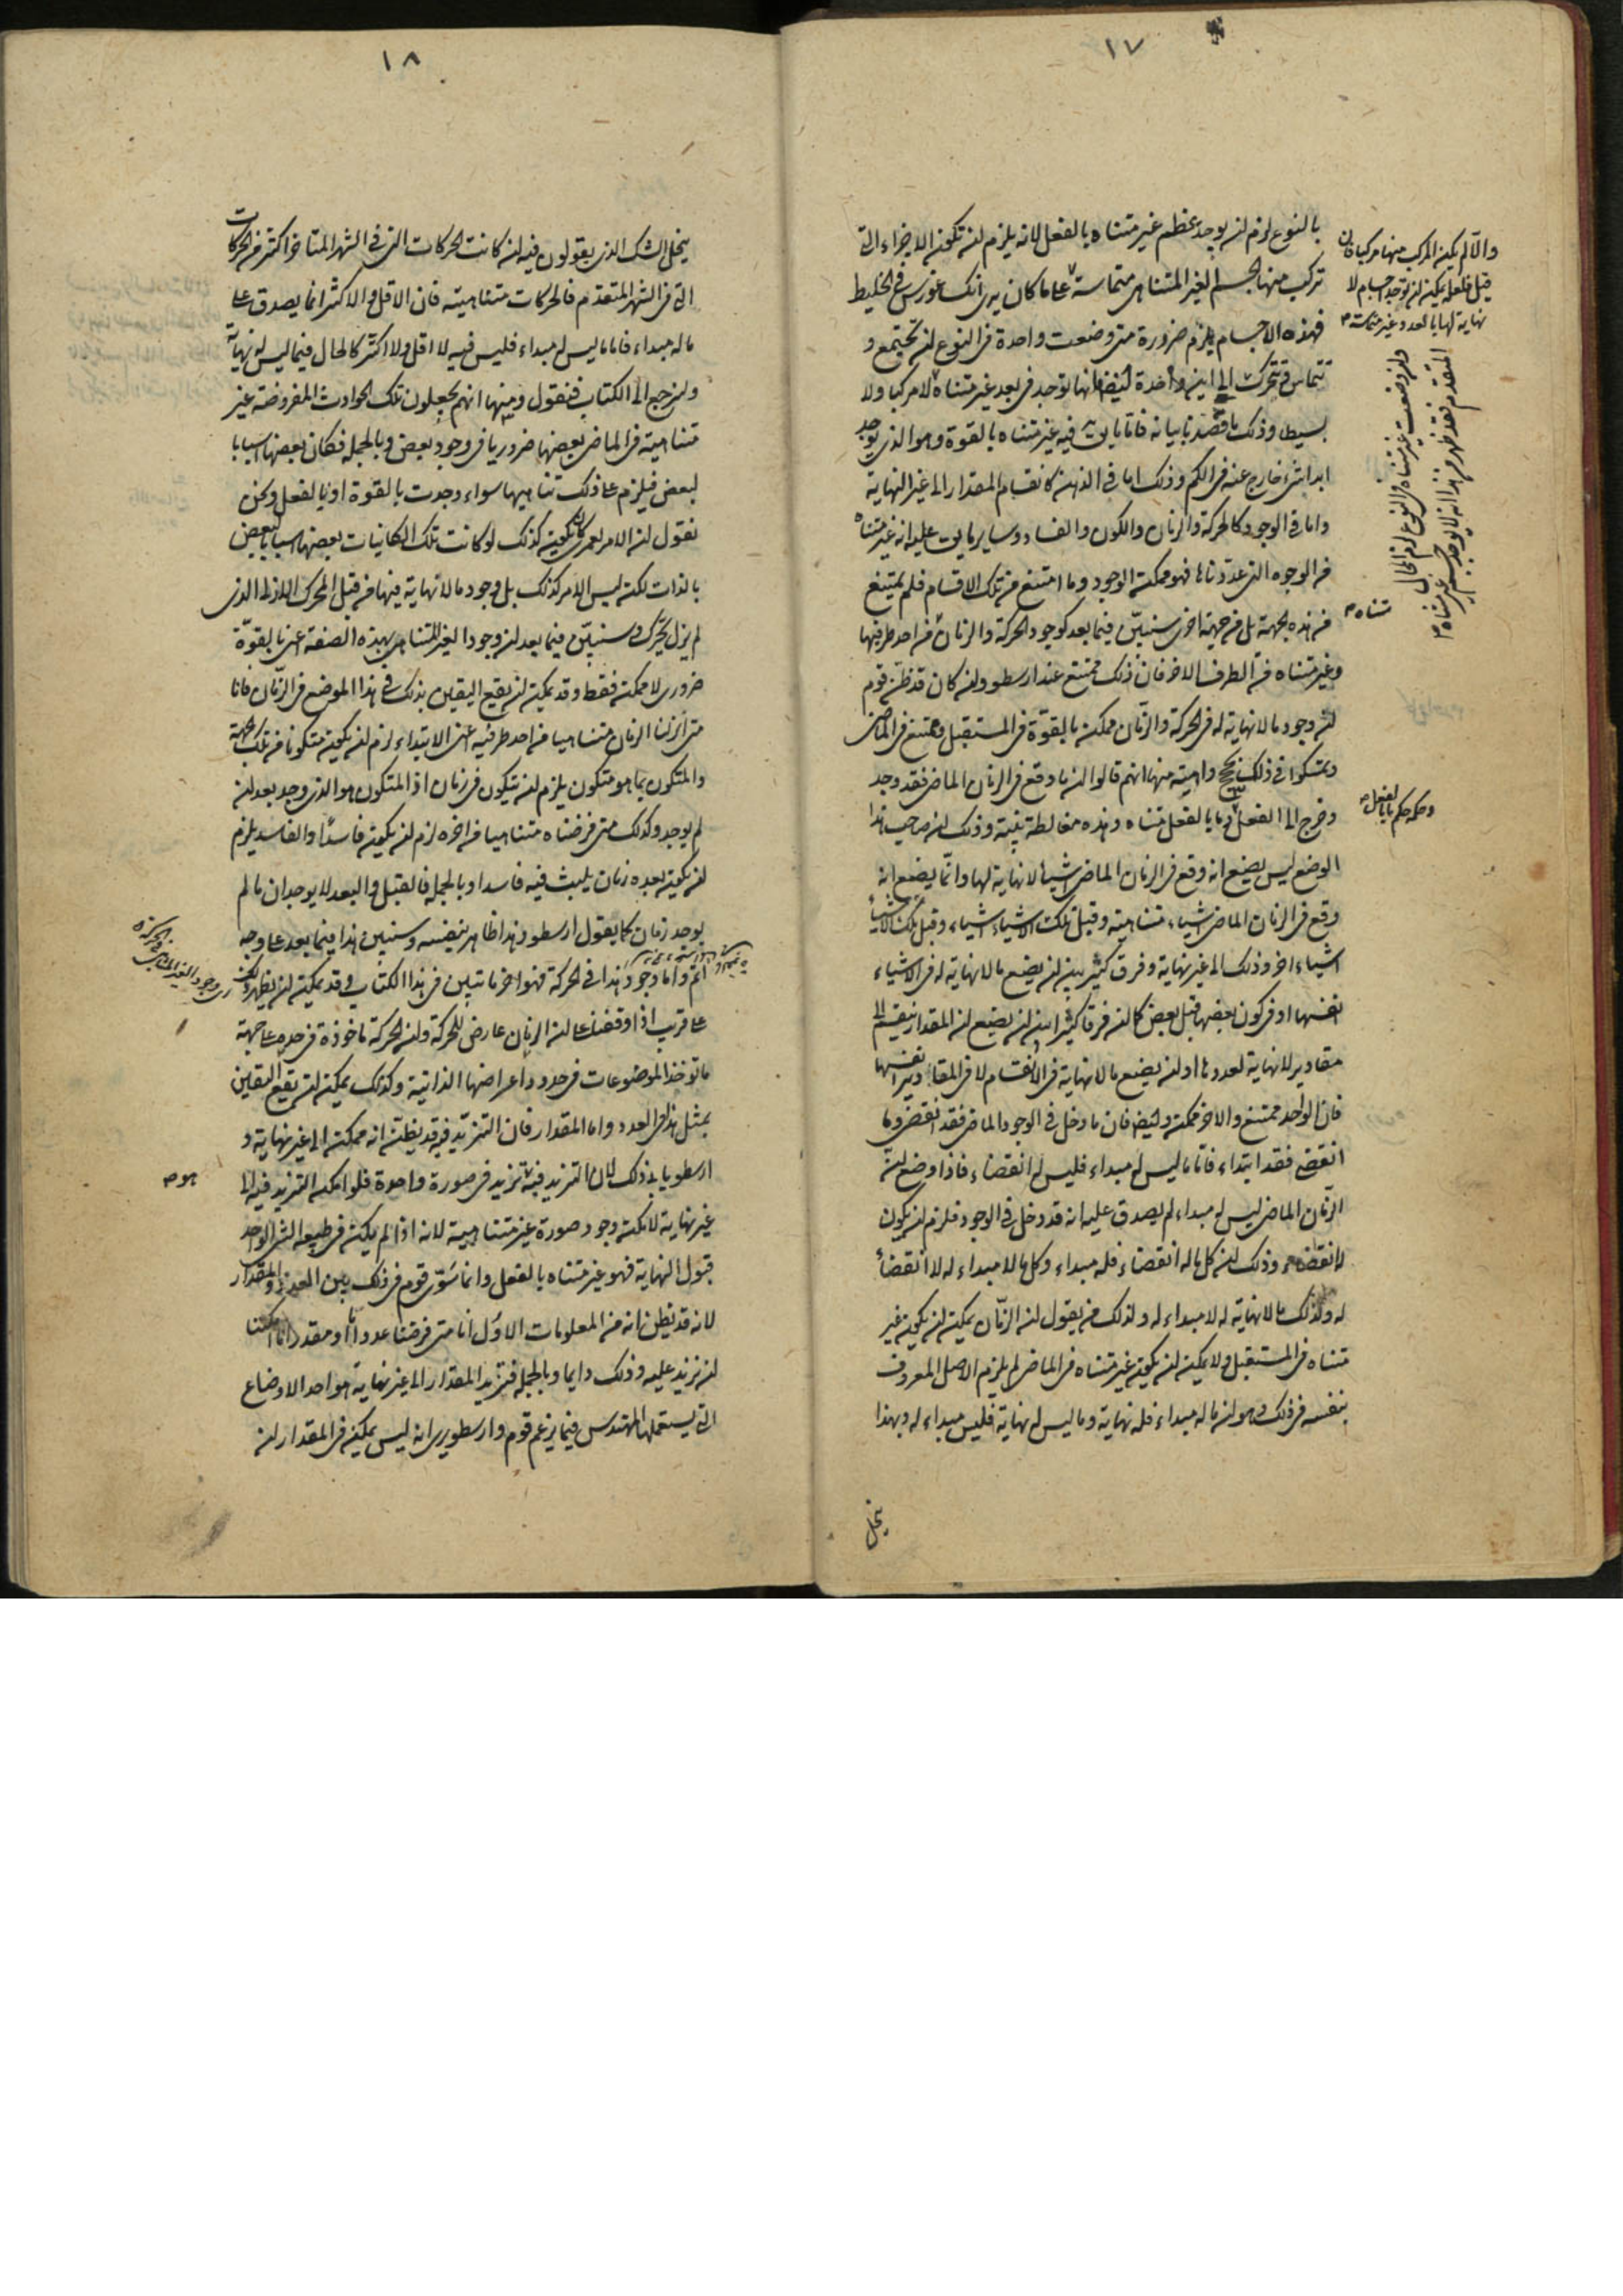 ١٧
بالنوع لزم ان يوجد عظم غير متناه بالفعل لانه يلزم ان تكون الاجزاء التى
تركب منها الجسم الغير المتناهى متماسة على ما كان يرى انكساغورس فى الخليط
فهذه الاجسام يلزم ضرورة متى وضعت واحدة فى النوع ان تجتمع و
تتماس فتتحرك الى اين واحدة ايضا انها توجد فى بعد غير متناه لا مركبا ولا
بسيط وذلك ما قصدنا بيانه فاما ما يق فيه غير متناه بالقوة وهو الذى يوجد
ابدا شئ خارج عنه فى الكم وذلك اما فى الذهن كانقسام المقدار الى غير النهاية
واما فى الوجود كالحركة والزمان والكون والفساد وساير ما يق عليه انه غير متناه
من الوجوه التى عددناها فهو ممكن الوجود وما امتنع من تلك الاقسام فلم يمتنع
من هذه الجهة بل من جهة اخرى سنبين فيما بعد كوجود الحركة والزمان من احد طرفيها
وغير متناه من الطرف الاخر فان ذلك ممتنع عند ارسطو وان كان قد ظن قوم
ان وجود ما لا نهاية له فى الحركة والزمان ممكن بالقوة فى المستقبل وممتنع فى الماضى
وتمسكوا فى ذلك بحجج واهية منها انهم قالوا ان ما وقع فى الزمان الماضى فقد وجد
وخرج الى الفعل وما بالفعل متناه وهذه مغالطة بينة وذلك ان صاحب هذا
الوضع ليس يضع انه وقع فى الزمان الماضى اشياء لا نهاية لها وانما يضع انه
وقع فى الزمان الماضى اشياء متناهية وقبل تلك الاشياء اشياء وقبل تلك الاشياء
اشياء اخر وذلك الى غير نهاية وفرق كثير بين ان يضع ما لا نهاية له فى الاشياء
انفسها او فى كون بعضها قبل بعض كما ان فرقا كثيرا بين ان يضع ان المقدار ينقسم الى
مقادير لا نهاية لعددها او ان يضع ما لا نهاية فى الانقسام لا فى المقادير انفسها
فان الواحد ممتنع والاخر ممكن وايضا فان ما دخل فى الوجود الماضى فقد انقضى وما
انقضى فقد ابتداء فاما ما ليس له مبداء فليس له انقضاء فاذا وضع ان
الزمان الماضى ليس له مبداء لم يصدق عليه انه قد دخل فى الوجود فلزم ان يكون
لا انقضاء وذلك ان كل ما له انقضاء فله مبداء وكل ما لا مبداء له لا انقضاء
له ولذلك ما لا نهاية له لا مبداء له ولذلك من يقول ان الزمان يمكن ان يكون غير
متناه فى المستقبل ولا يمكن ان يكون غير متناه فى الماضى لم يلزم الاصل المعروف
بنفسه فى ذلك وهو ان ما له مبداء فله نهاية وما ليس له نهاية فليس مبداء له وبهذا
ينحل
والا لم يكن المركب منها مركبا فان
قيل فلعله يمكن ان توجد اجسام لا
نهاية لها بالعدد وغير متماسة
وان وضعت غير متناه فى النوع لزم المحال
المتقدم فقد ظهر من هذا انه لا يوجد جسم غير متناه
متناه
وحكمه حكم ما بالفعل
١٨
ينحل الشك الذى يقولون فيه ان كانت الحركات التى فى الشهر المتاخر اكثر من الحركات
التى فى الشهر المتقدم فالحركات متناهية فان الاقل والاكثر انما يصدق على
ما له مبداء فاما ما ليس له مبداء فليس فيه لا اقل ولا اكثر كالحال فيما ليس له نهاية
ولنرجع الى الكتاب فنقول ومنها انهم يجعلون تلك الحوادث المفروضة غير
متناهية فى الماضى بعضها ضروريا فى وجود بعض وبالجملة فكان بعضها اسبابا
لبعض فيلزم على ذلك تناهيها سواء وجدت بالقوة او بالفعل ونحن
نقول ان الامر لعمرى كان يكون كذلك لو كانت تلك الكائنات بعضها اسبابا لبعض
بالذات لكنه ليس الامر كذلك بل وجود ما لا نهاية فيها من قبل المحرك الازلى الذى
لم يزل يحرك وسنبين فيما بعد ان وجود الغير المتناهى بهذه الصفة اعنى بالقوة
ضرورى لا ممكن فقط وقد يمكن ان يقع اليقين بذلك فى هذا الموضع من الزمان فانا
متى انزلنا الزمان متناهيا من احد طرفيه اعنى الابتداء لزم ان يكون متكونا من تلك الجهة
والمتكون بما هو متكون يلزم ان يتكون فى زمان اذ المتكون هو الذى وجد بعد ان
لم يوجد وكذلك متى فرضناه متناهيا من اخره لزم ان يكون فاسدا والفاسد يلزم
ان يكون بعده زمان يلبث فيه فاسدا وبالجملة فالقبل والبعد لا يوجدان ما لم
يوجد زمان كما يقول ارسطو وهذا ظاهر بنفسه وسنبين هذا فيما بعد على وجه
اتم واما وجود هذا فى الحركة فهو اخر ما تبين فى هذا الكتاب وقد يمكن ان يظهر ذلك
على قرب اذا وقفنا على ان الزمان عارض للحركة وان الحركة ماخوذة فى حده على جهة
ما توخذ الموضوعات فى حدود اعراضها الذاتية وكذلك يمكن ان يقع اليقين
بمثل هذا فى العدد واما المقدار فان التزيد فيه قد يظن انه ممكن الى غير نهاية و
ارسطو يابى ذلك لان التزيد فيه تزيد فى صورة واحدة فلو امكن التزيد فيه الى
غير نهاية لامكن وجود صورة غير متناهية لانه اذا لم يكن فى طبيعة الشئ الواحد
قبول النهاية فهو غير متناه بالفعل وانما سوى قوم فى ذلك بين العدد والمقدار
لانه قد يظن انه من المعلومات الاول انا متى فرضنا عددا ما او مقدارا ما امكننا
ان نزيد عليه وذلك دايما وبالجملة فتزيد المقدار الى غير نهاية هو احد الاوضاع
التى يستعملها المهندس فيما يزعم قوم وارسطو يرى انه ليس يمكن فى المقدار ان
هو